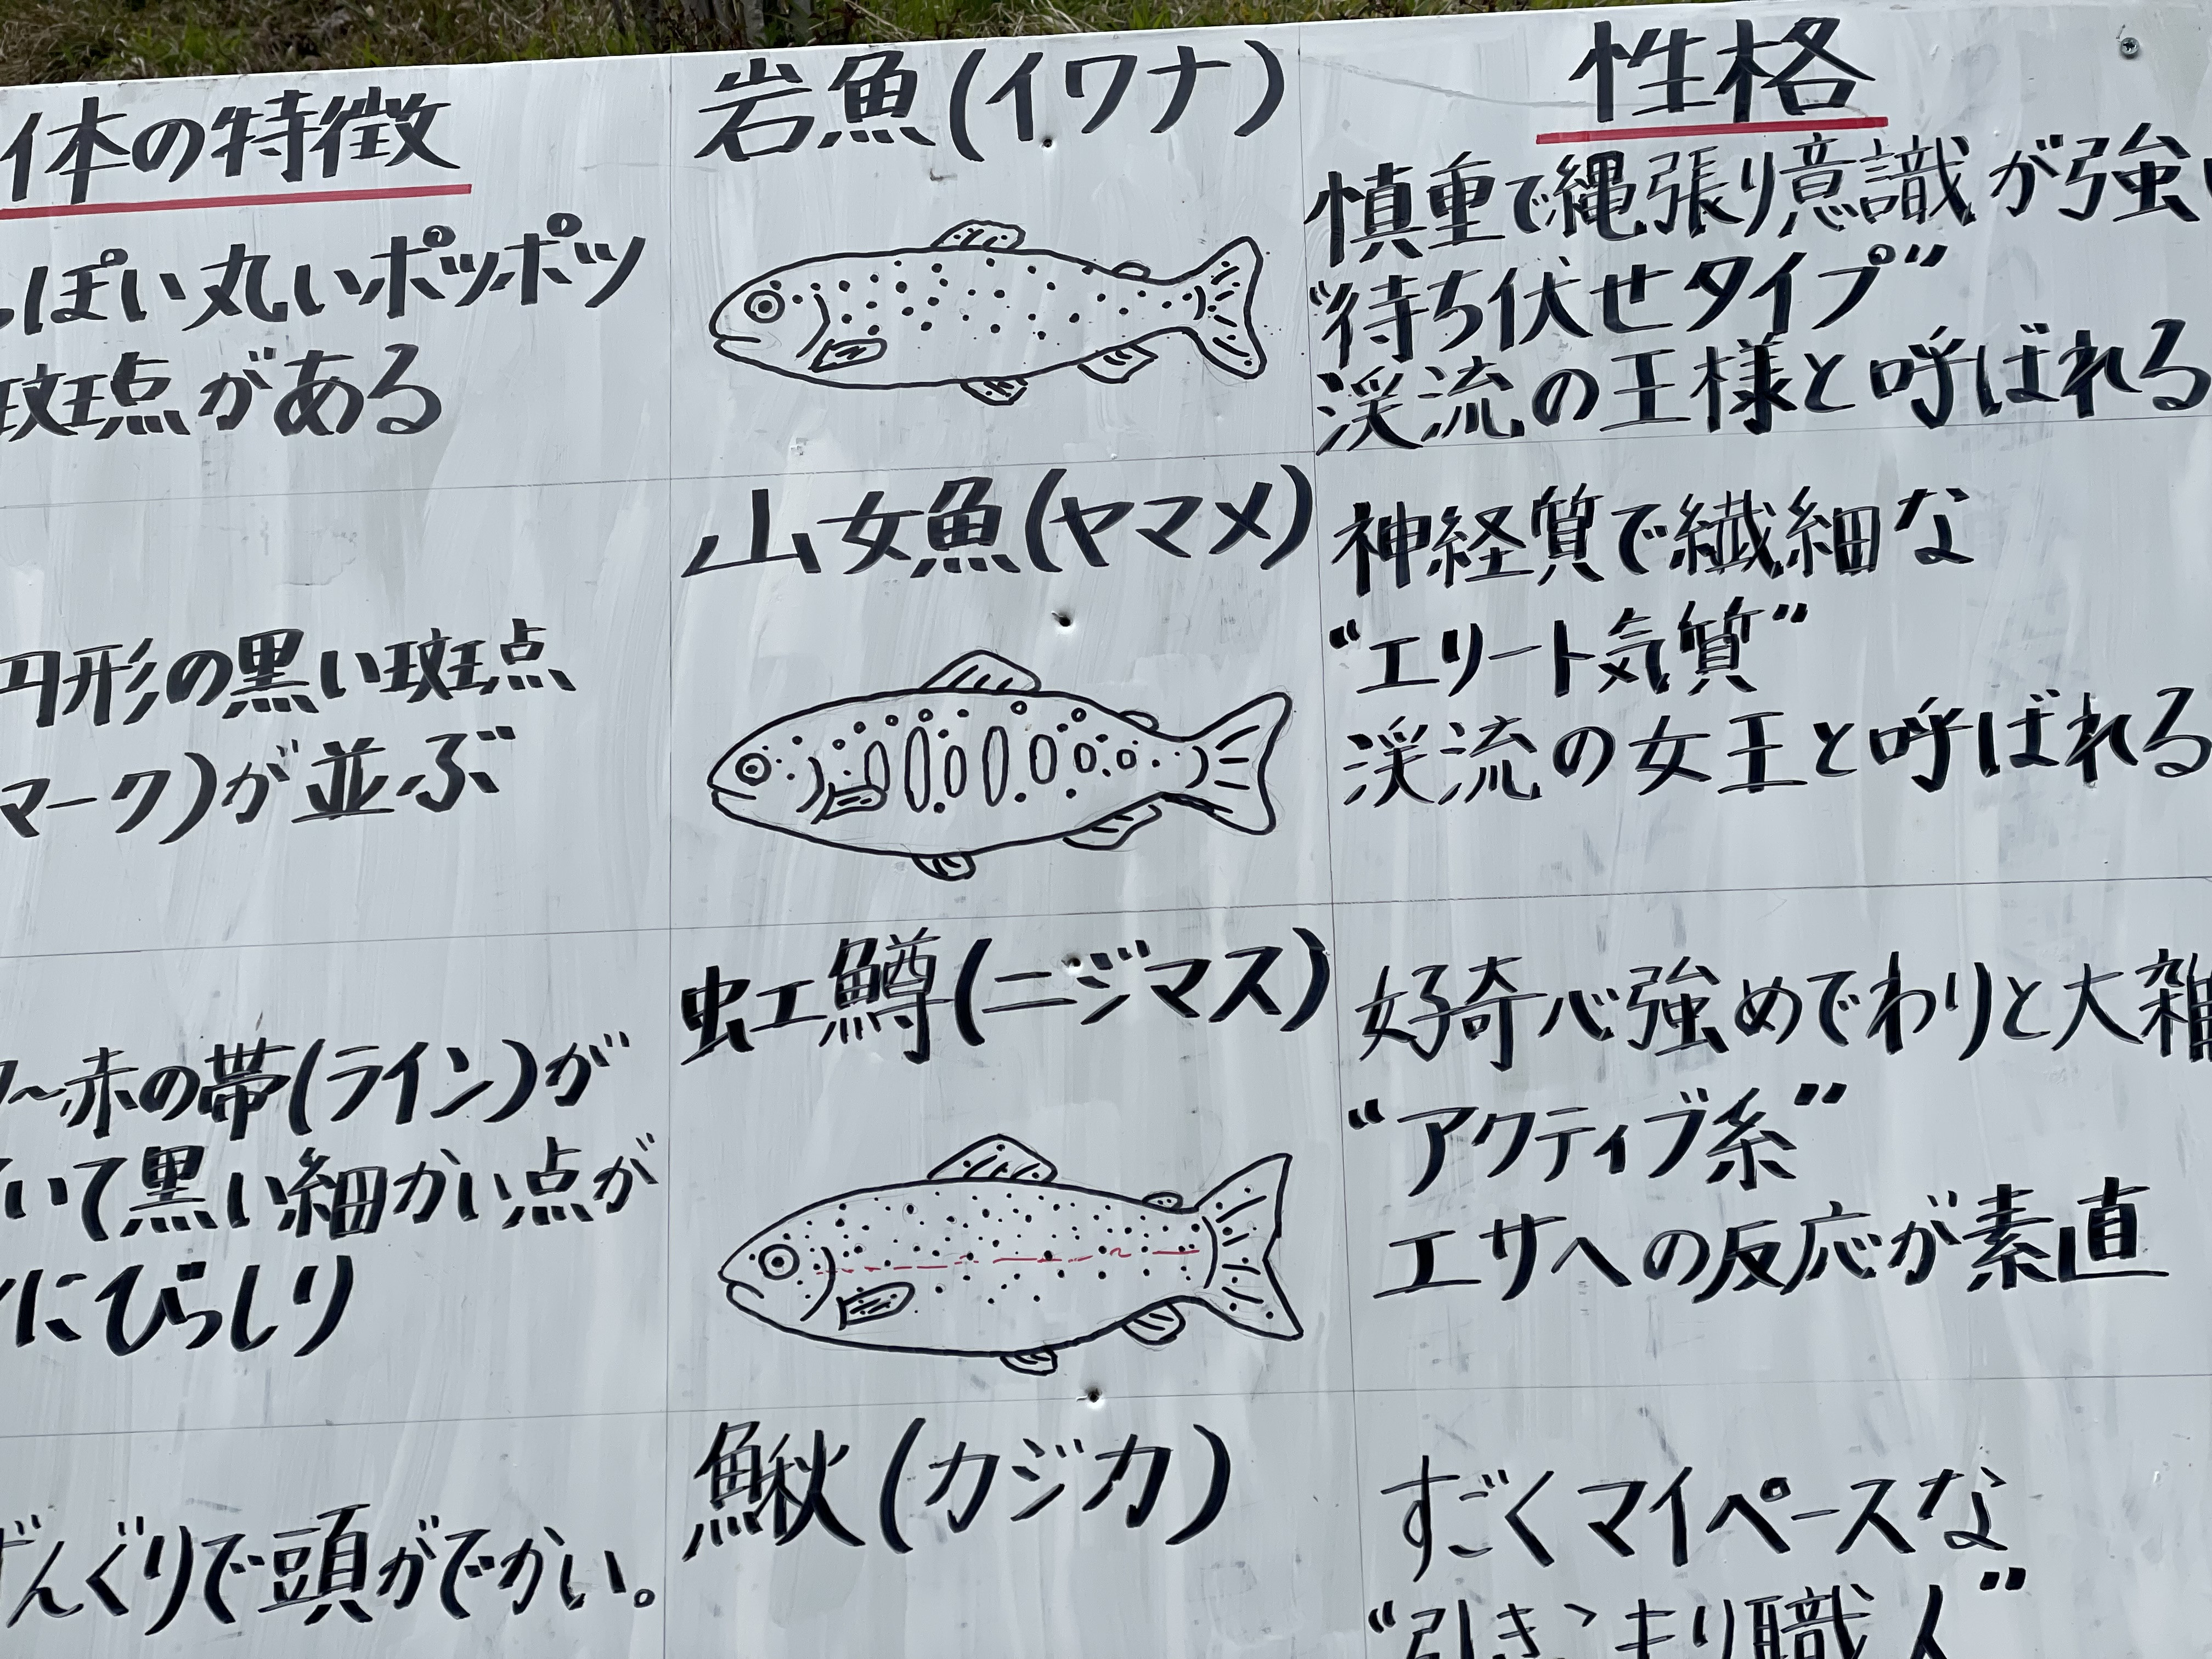 体の特徴
っぽい丸いポツポツ
斑点がある
円形の黒い斑点
マーク)が並ぶ
〜赤の帯(ライン)が
いて黒い細かい点が
にびっしり
ずんぐりで頭がでかい。
岩魚(イワナ)
山女魚(ヤマメ)
虹鱒(ニジマス)
鰍(カジカ)
性格
慎重で縄張り意識が強い
“待ち伏せタイプ”
渓流の王様と呼ばれる
神経質で繊細な
“エリート気質”
渓流の女王と呼ばれる
好奇心強めでわりと大雑
“アクティブ系”
エサへの反応が素直
すごくマイペースな
“引きこもり職人”